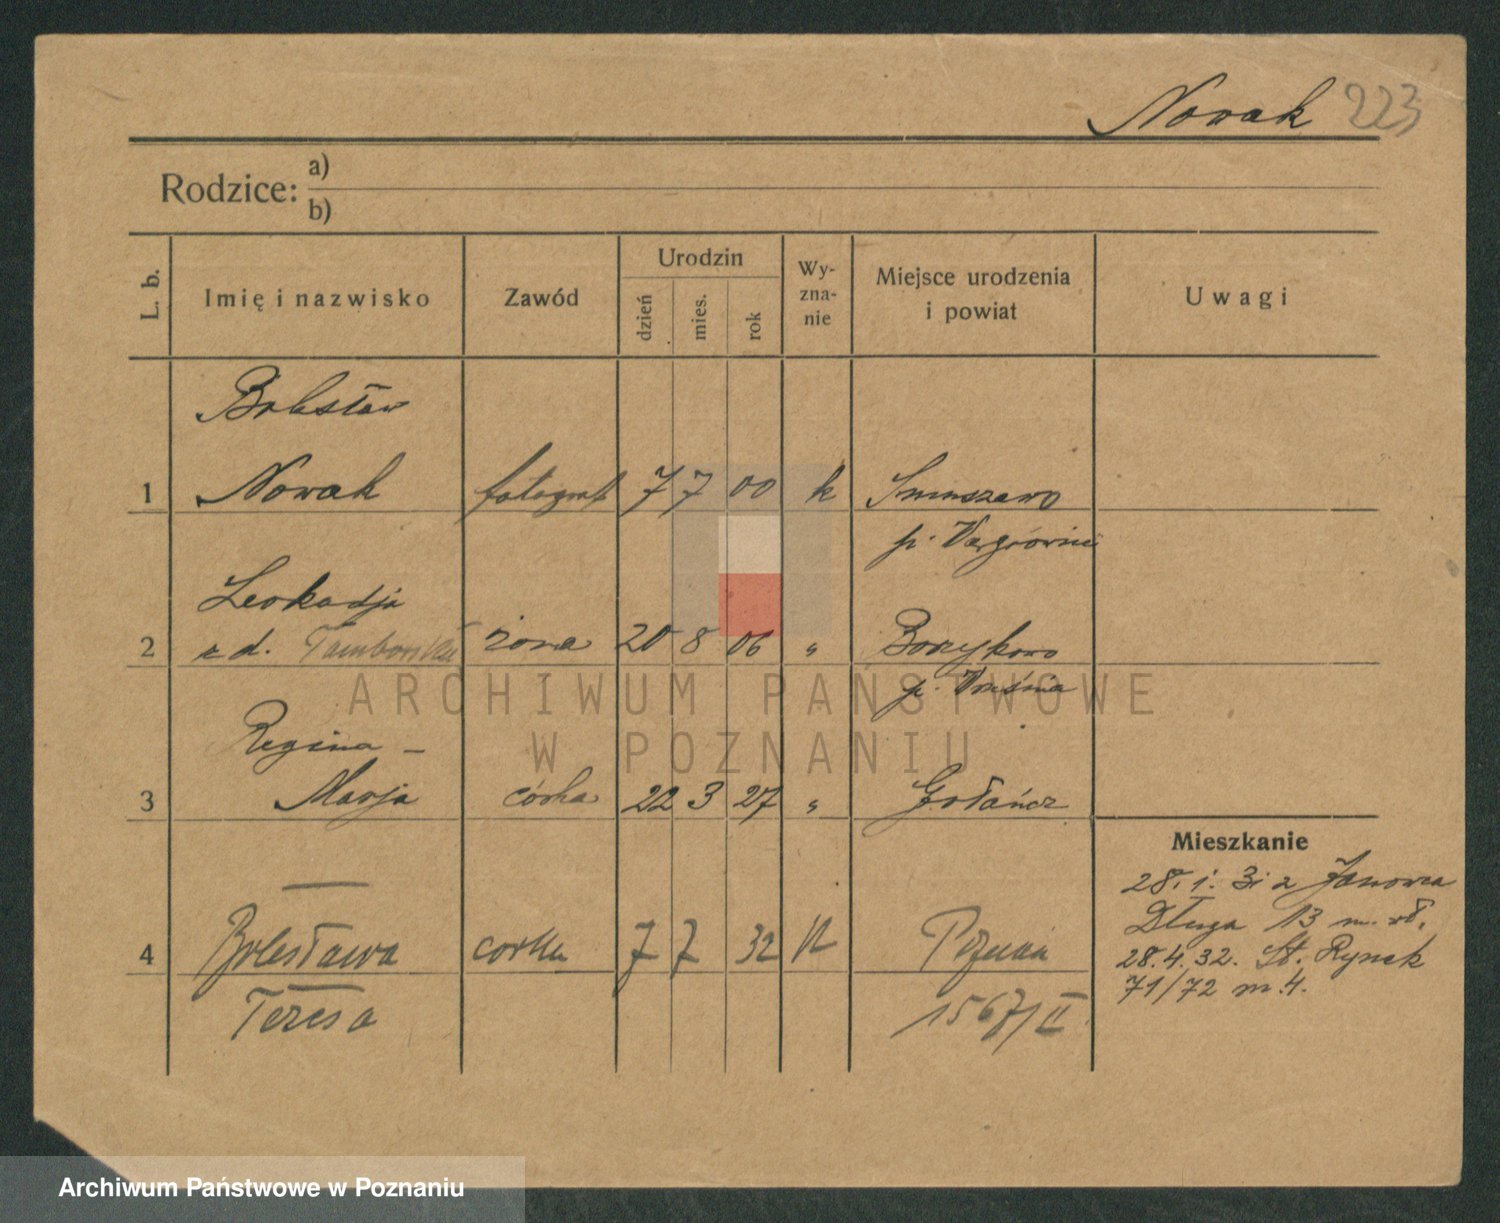 Nowak 223
Rodzice: a)
b)
L. b. Imię i nazwisko Zawód Urodzin dzień mies. rok Wyzna-nie Miejsce urodzenia i powiat Uwagi
Bolesław
1 Nowak fotograf 7 7 00 k
p.
Leokadja
2 z d. żona 20 8 06 "
p. Września
Regina –
3 Marja córka 22 3 27 " Gołańcz
Mieszkanie
28. 1. 31 z Janowca
Długa 13 m.
28.4.32. St. Rynek
71/72 m.4.
4 Bolesława corka 7 7 32 k Poznań
Teresa 1567/II
ARCHIWUM PAŃSTWOWE
W POZNANIU
Archiwum Państwowe w Poznaniu